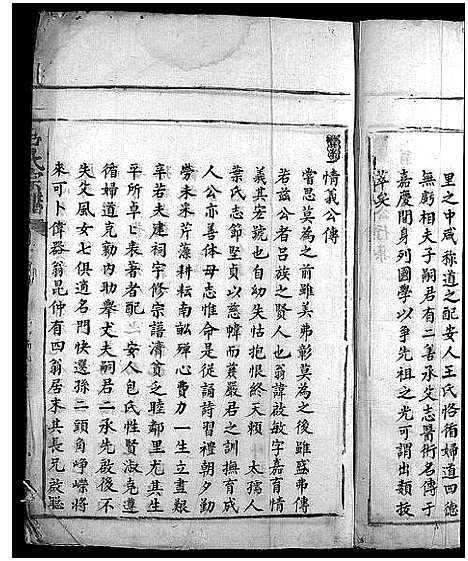 里之中咸称道之配安人王氏恪脩婦道四德
無虧相夫子嗣君有二善承父志醫術名傳于
嘉慶間身列國學以爭先祖之光可謂出類技
萃矣
情義公傳
嘗思莫為之前雖美弗彰莫為之後雖盛弗傳
若兹公者吕族之賢人也翁諱啟敏字嘉育情
義其宏號也自幼失怙抱恨終天頼 太孺人
葉氏志節堅貞以慈幃而蒹嚴君之訓撫育成
人公亦善体母志惟命是從誦詩習禮朝夕勤
勞未釆芹藻耕耘南畝殫心費力一生立畫艱
辛若夫建祠宇修宗譜濟貧乏睦鄰里尤其生
平所卓卓表著者配 安人包氏性賢淑克遵
循婦道克勤内助舉丈夫嗣君二承先啟後不
失父風女七俱適名門快選孫二頭角崢嶸將
來可卜偉器翁昆仲有四翁居末其長兄啟聪